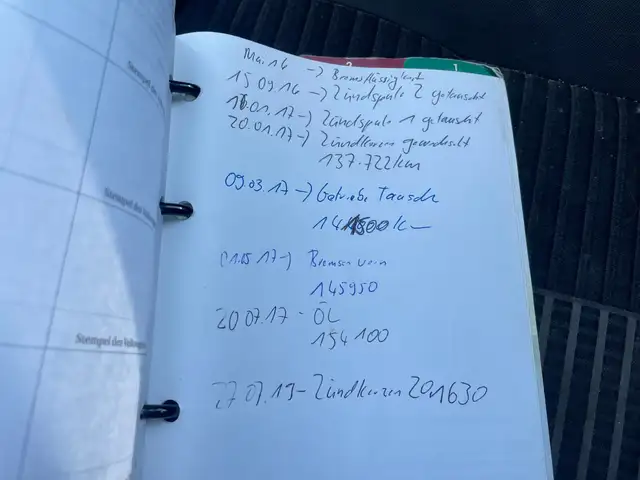 Mai.16 -> Bremsflüssigkeit
15 09.16 -> Zündspule 2 getauscht
16.01.17 -> Zündspule 1 getauscht
20.01.17 -> Zündkerzen gewechselt
137.722 km
09.03.17 -> Getriebe Tausch
Km
01.05 17 -> Bremsen vorn
145950
20 07.17 - ÖL
154 100
27 07.19 - Zündkerzen 201630
Stempel des
Stempel des Volks
Stempel des Volkswagen